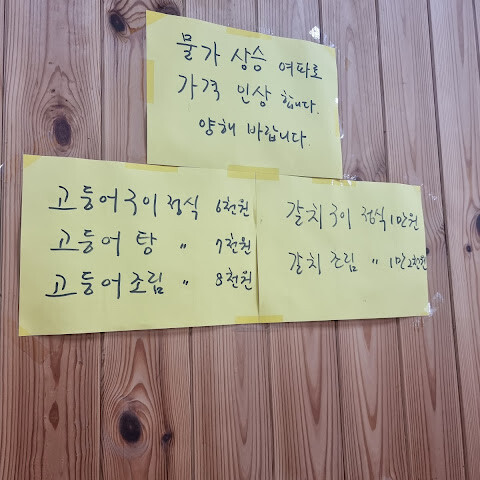 물가 상승 여파로
가격 인상 합니다.
양해 바랍니다.
고등어구이 정식 6천원
고등어 탕 〃 7천원
고등어조림 〃 8천원
갈치구이 정식 1만원
갈치 조림 〃 1만2천원